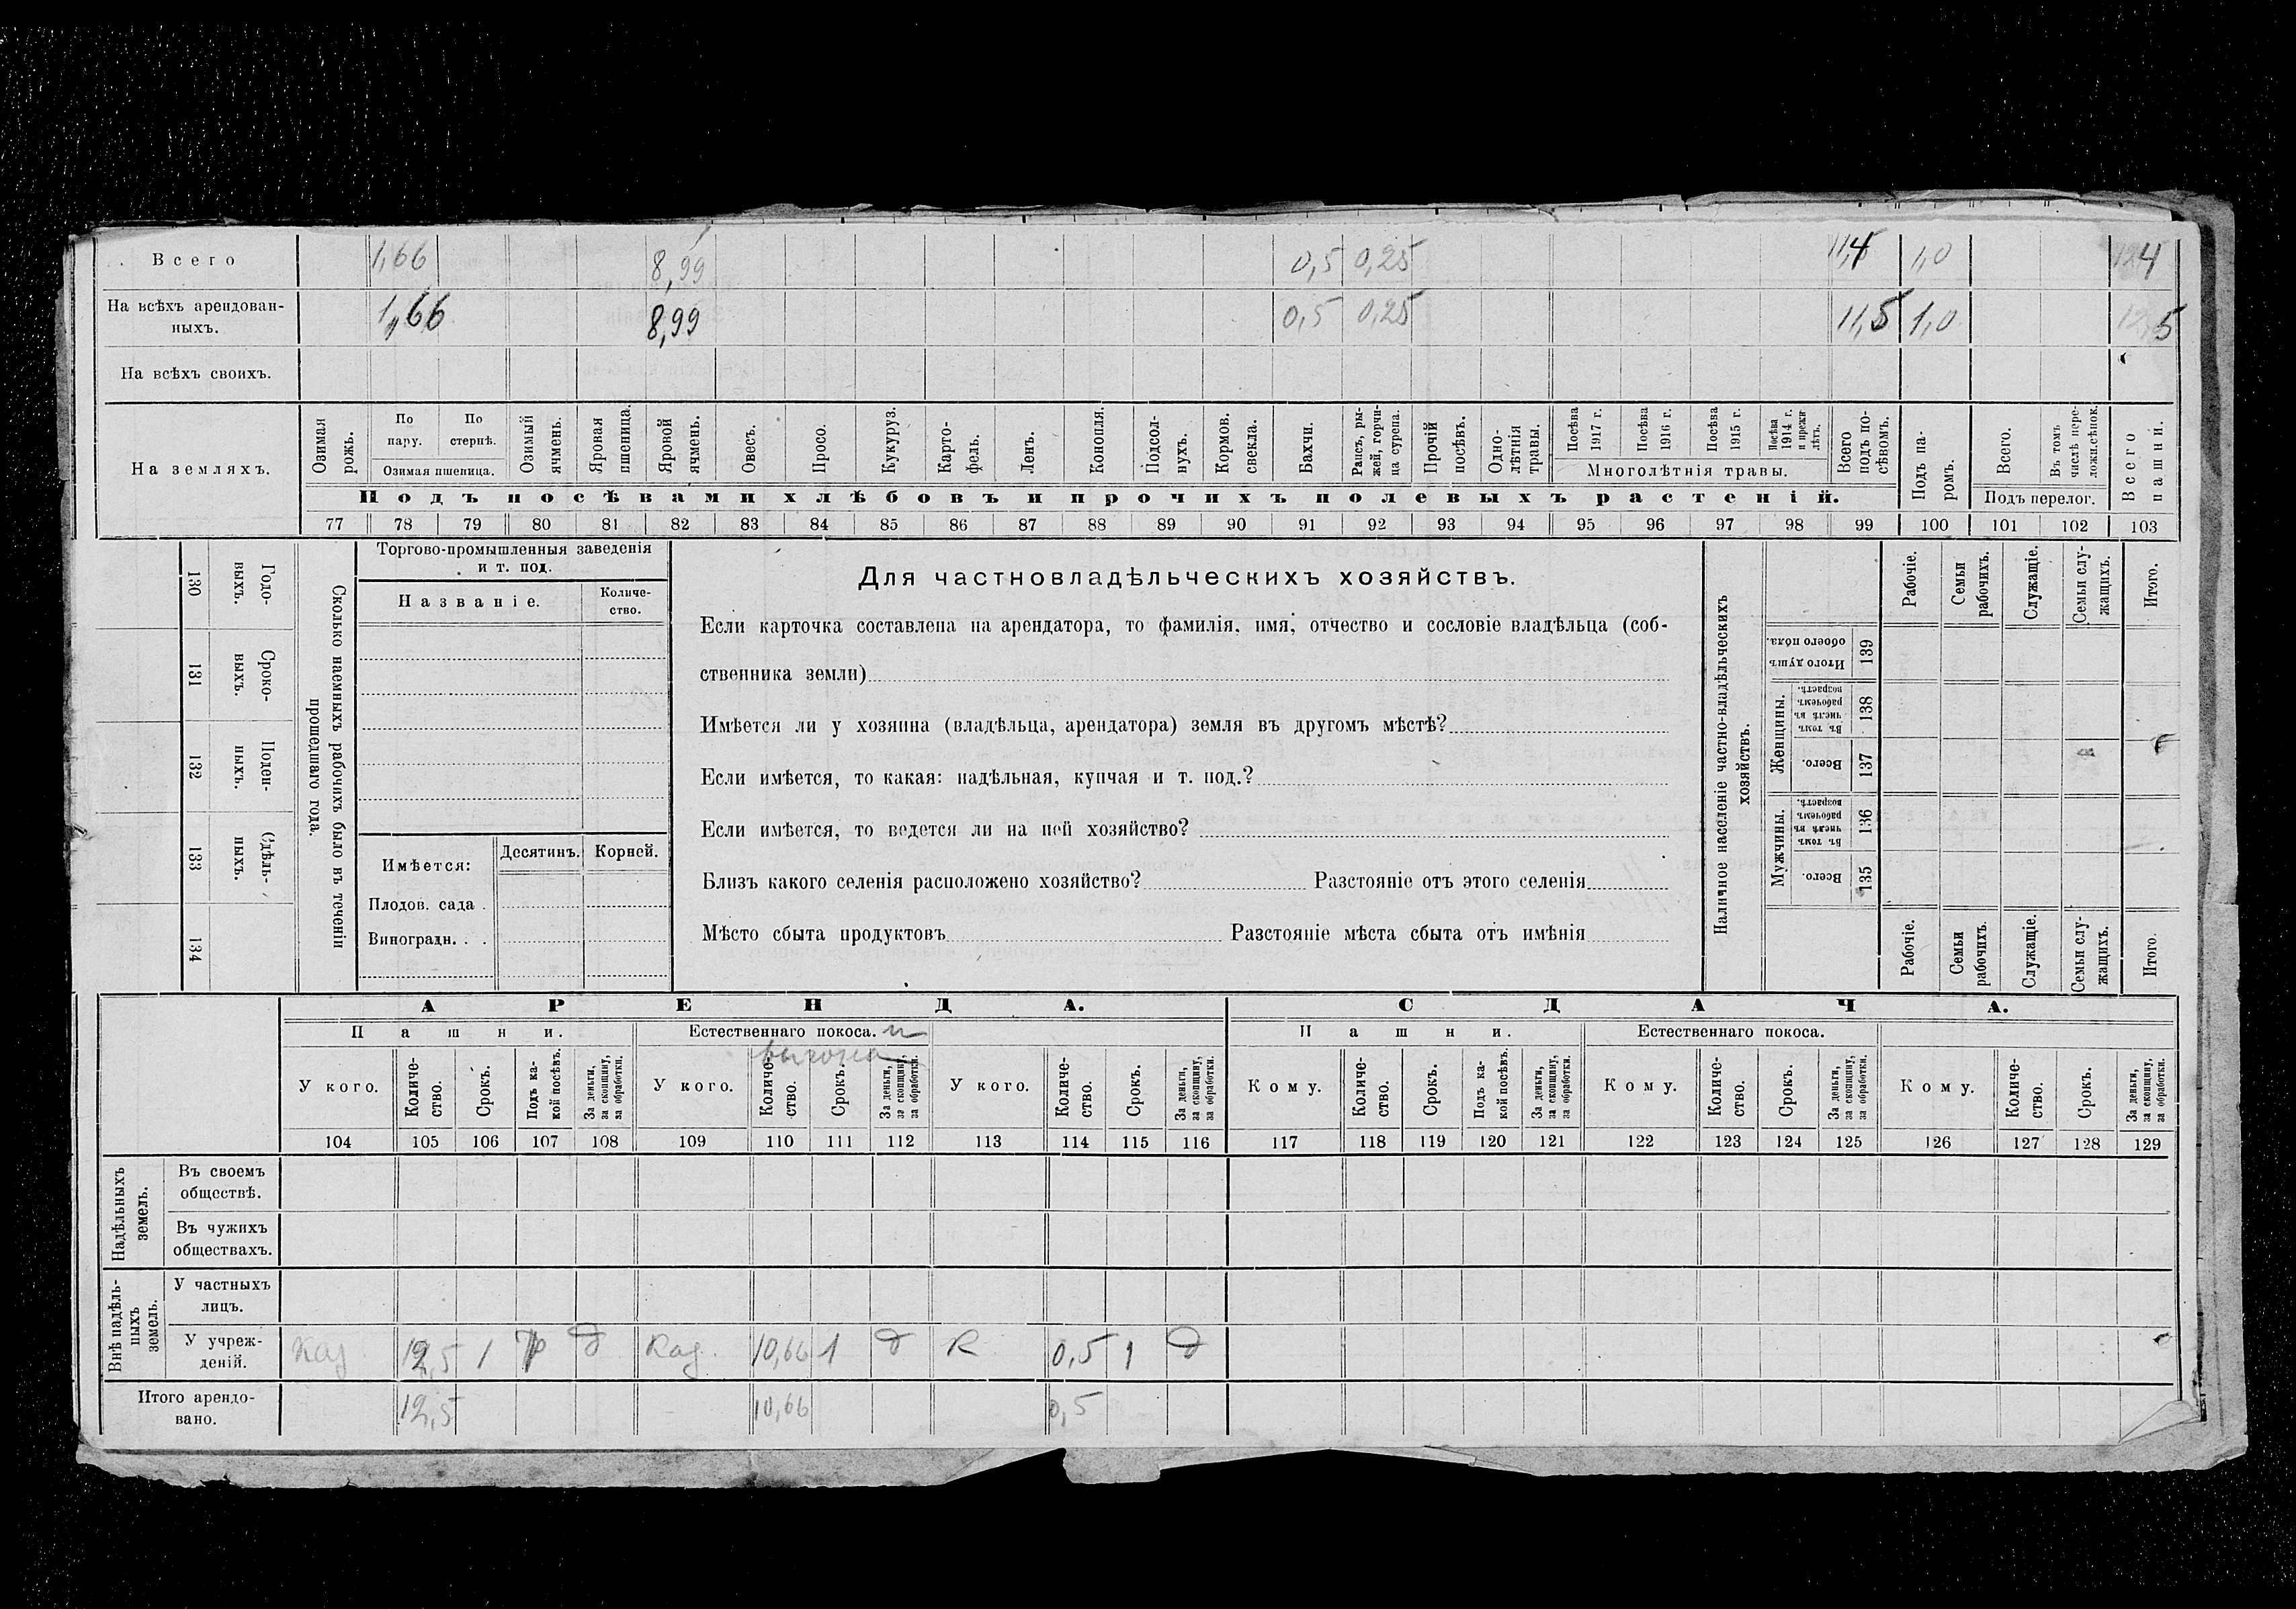 Всего 1,66 8,99 0,5 0,25 11,4 1,0 12,4
На всѣхъ арендован-
ныхъ. 1,66 8,99 0,5 0,25 11,5 1,0 12,5
На всѣхъ своихъ.
На земляхъ.
Озимая рожь.
По пару.
По стернѣ.
Озимая пшеница.
Озимый ячмень.
Яровая пшеница.
Яровой ячмень.
Овесъ.
Просо.
Кукуруз.
Карто-
фель.
Ленъ.
Конопля.
Подсол-
нухъ.
Кормов. свекла.
Бахчи.
Рапсъ, ры-
жей, горчи-
ца сурепа.
Прочій посѣвъ.
Одно-
лѣтнія травы.
Посѣва 1917 г.
Посѣва 1916 г.
Посѣва 1915 г.
Посѣва 1914 г. и прежн. лѣтъ.
Многолѣтнія травы.
Всего подъ по-
сѣвомъ.
Подъ па-
ромъ.
Всего.
Въ томъ числѣ пере-
ложн. сѣнок.
Подъ перелог.
Всего пашни.
Подъ посѣвами хлѣбовъ и прочихъ полевыхъ растеній.
77 78 79 80 81 82 83 84 85 86 87 88 89 90 91 92 93 94 95 96 97 98 99 100 101 102 103
130 Годо-
выхъ.
131 Сроко-
выхъ.
132 Поден-
ныхъ.
133 Сдѣль-
ныхъ.
134
Сколько наемныхъ рабочихъ было въ теченіи
прошедшаго года.
Торгово-промышленныя заведенія
и т. под.
Названіе.
Количе-
ство.
Имѣется:
Десятинъ.
Корней.
Плодов. сада .
Виноградн. . .
Для частновладѣльческихъ хозяйствъ.
Если карточка составлена на арендатора, то фамилія, имя, отчество и сословіе владѣльца (соб-
ственника земли)
Имѣется ли у хозяина (владѣльца, арендатора) земля въ другомъ мѣстѣ?
Если имѣется, то какая: надѣльная, купчая и т. под.?
Если имѣется, то ведется ли на ней хозяйство?
Близъ какого селенія расположено хозяйство? Разстояніе отъ этого селенія
Мѣсто сбыта продуктовъ Разстояніе мѣста сбыта отъ имѣнія
Наличное населеніе частно-владѣльческихъ
хозяйствъ.
Рабочіе.
Семьи рабочихъ.
Служащіе.
Семьи слу-
жащихъ.
Итого.
Итого душъ обоего пола. 139
Женщины.
Въ томъ числѣ въ рабочемъ возрастѣ. 138
Всего. 137
Мужчины.
Въ томъ числѣ въ рабочемъ возрастѣ. 136
Всего. 135
Рабочіе.
Семьи рабочихъ.
Служащіе.
Семьи слу-
жащихъ.
Итого.
АРЕНДА. СДАЧА.
Пашни. Естественнаго покоса. и Пашни. Естественнаго покоса.
выгона
У кого.
Количе-
ство.
Срокъ.
Подъ ка-
кой посѣвъ.
За деньги, за скопщину, за обработки.
У кого.
Количе-
ство.
Срокъ.
За деньги, за скопщину, за обработки.
У кого.
Количе-
ство.
Срокъ.
За деньги, за скопщину, за обработки.
Кому.
Количе-
ство.
Срокъ.
Подъ ка-
кой посѣвъ.
За деньги, за скопщину, за обработки.
Кому.
Количе-
ство.
Срокъ.
За деньги, за скопщину, за обработки.
Кому.
Количе-
ство.
Срокъ.
За деньги, за скопщину, за обработки.
104 105 106 107 108 109 110 111 112 113 114 115 116 117 118 119 120 121 122 123 124 125 126 127 128 129
Надѣльныхъ земель.
Въ своемъ
обществѣ.
Въ чужихъ
обществахъ.
Внѣ надѣль-
ныхъ земель.
У частныхъ
лицъ.
У учреж-
деній. Каз. 12,5 1 д Каз. 10,66 1 д К 0,5 1 д
Итого арендо-
вано. 12,5 10,66 0,5